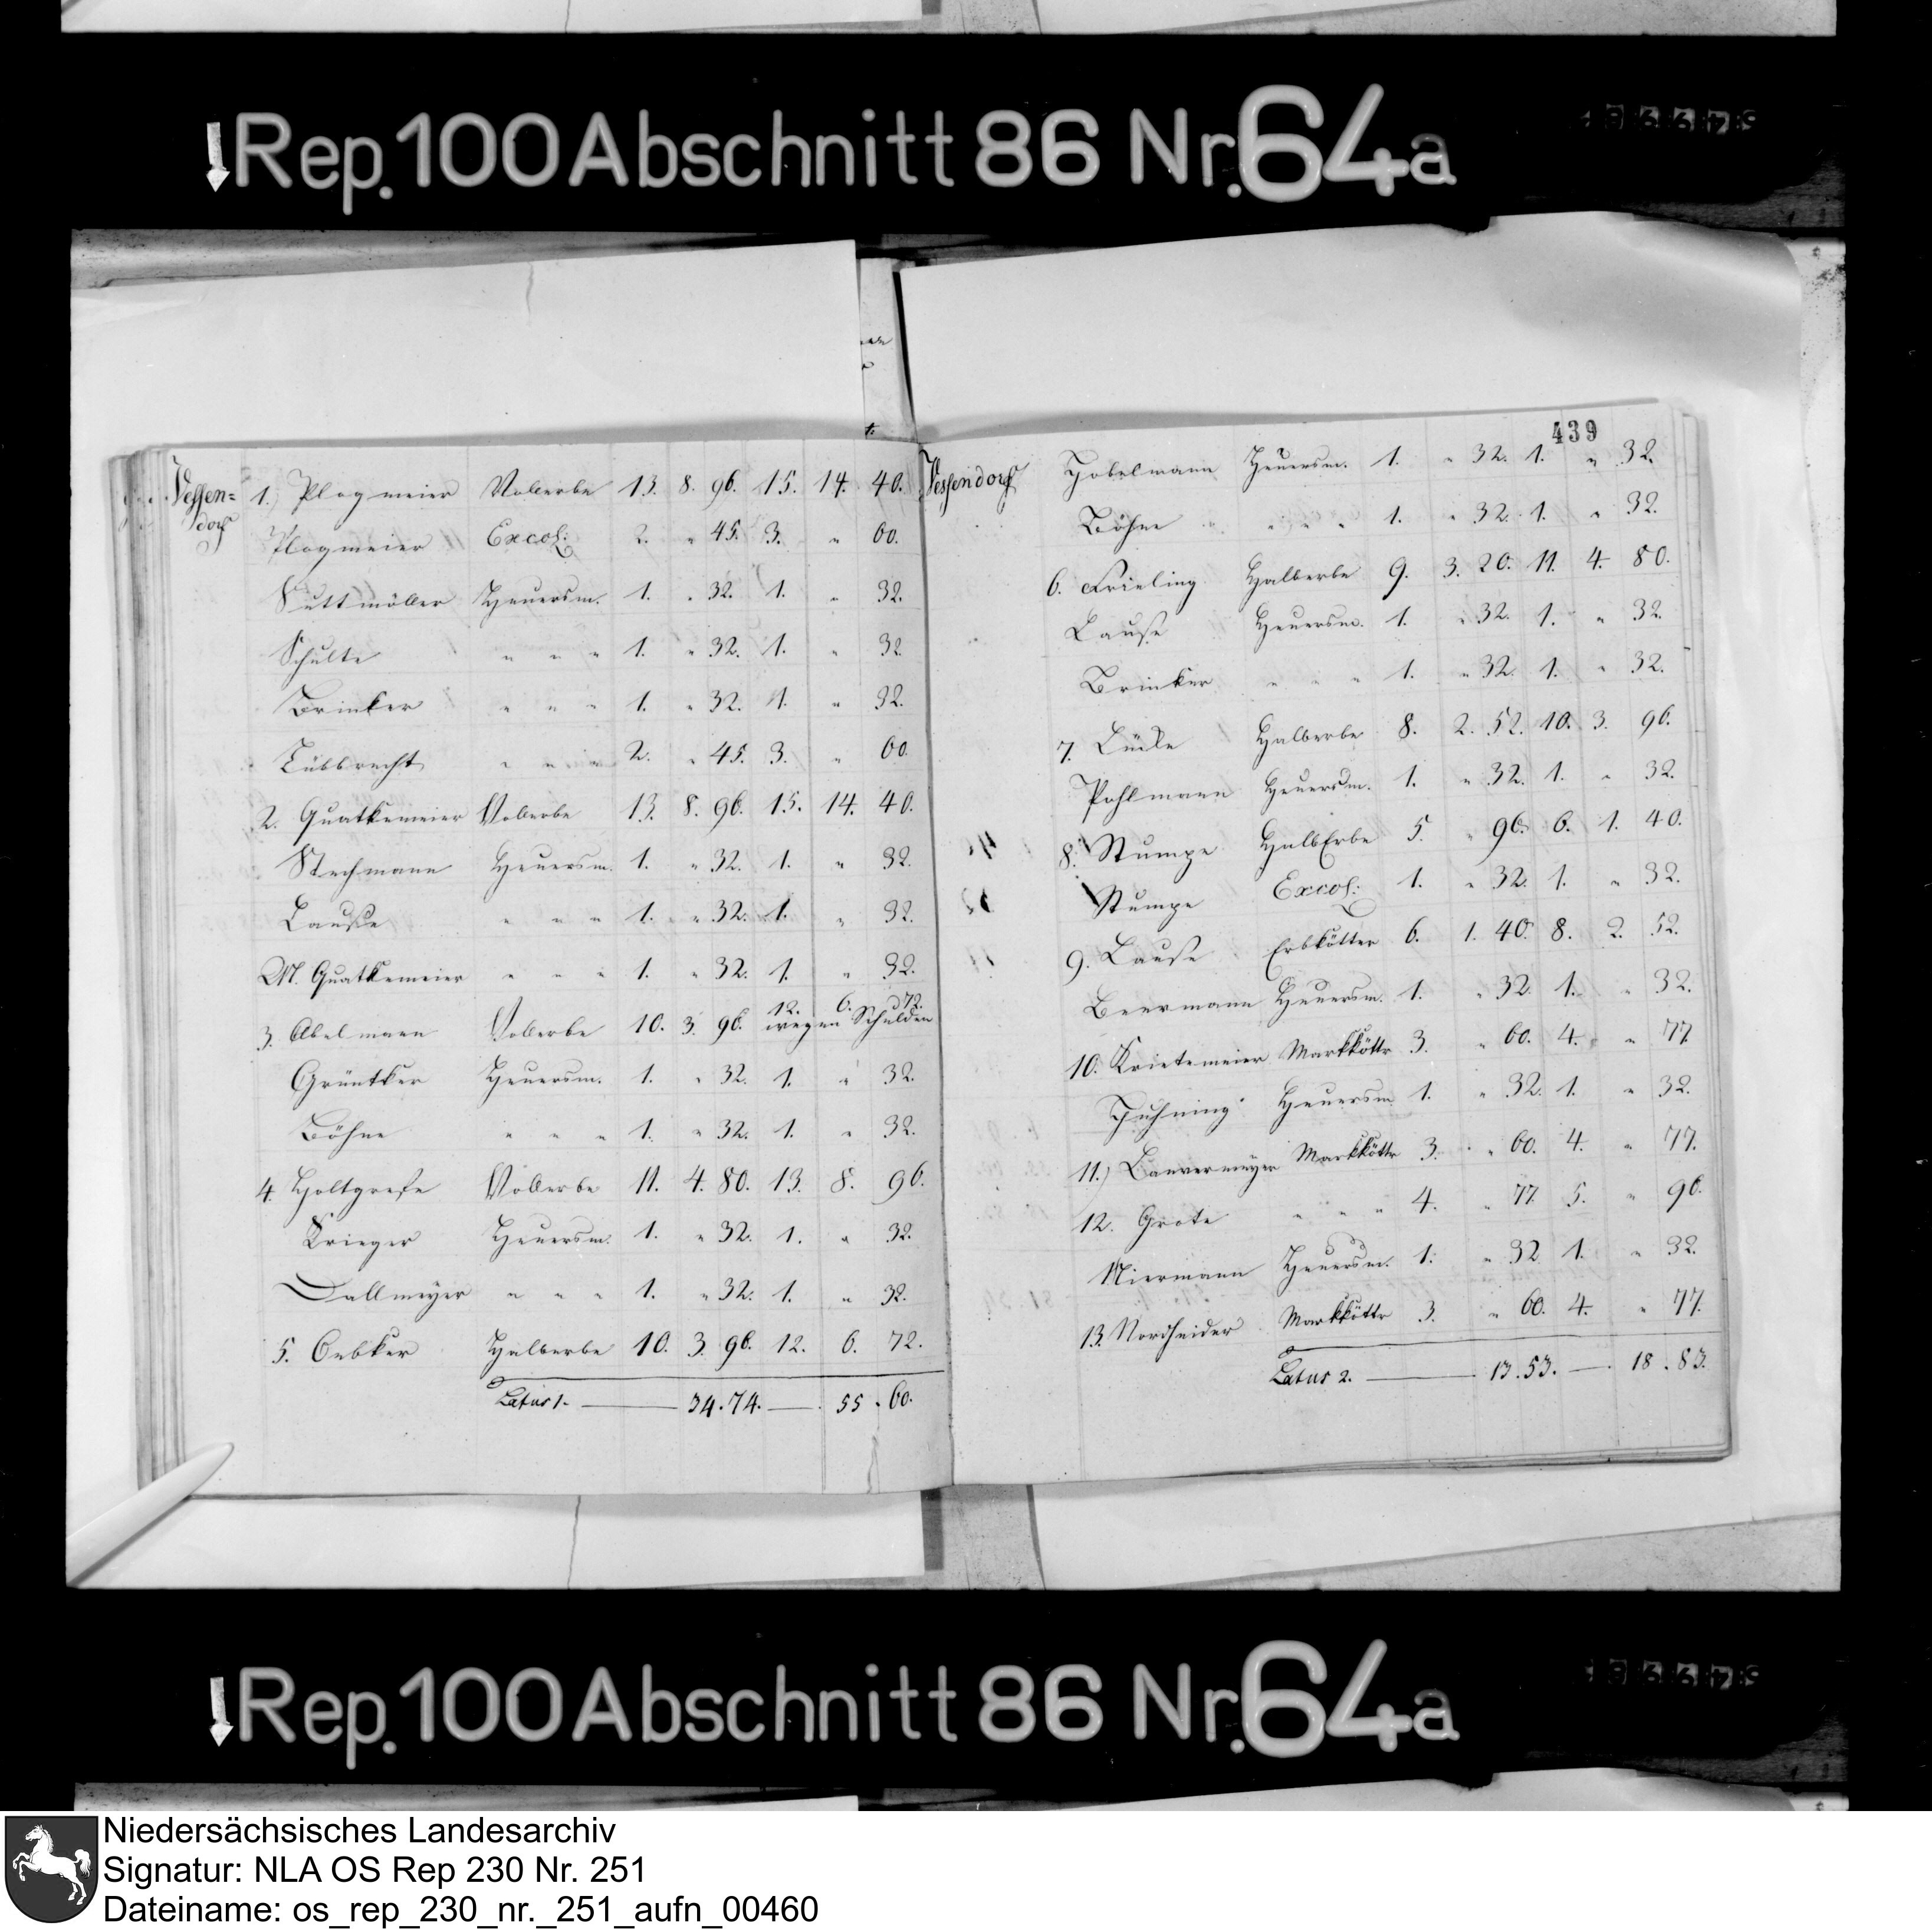 Rep. 100 Abschnitt 86 Nr. 64a
Vessen=
dorf
1. Plogmeier Vollerbe 13. 8. 96. 15. 14. 40.
Plogmeier Excol: 2. " 45. 3. " 60.
Suttmöller Heuersm. 1. " 32. 1. " 32.
Schulte " " " 1. " 32. 1. " 32.
Brinker " " " 1. " 32. 1. " 32.
Lübbrecht " " " 2. " 45. 3. " 60.
2. Quatkemeier Vollerbe 13. 8. 96. 15. 14. 40.
Stechmann Heuersm. 1. " 32. 1. " 32.
Lauße " " " 1. " 32. 1. " 32.
M. Quatkemeier " " " 1. " 32. 1. " 32.
3. Abelmann Vollerbe 10. 3. 96. 12. 6. 72.
wegen Schulden
Grüntker Heuersm. 1. " 32. 1. " 32.
Böhne " " " 1. " 32. 1. " 32.
4. Holtgrefe Vollerbe 11. 4. 80. 13. 8. 96.
Krieger Heuersm. 1. " 32. 1. " 32.
Dallmeyer " " " 1. " 32. 1. " 32.
5. Oebker Halberbe 10. 3. 96. 12. 6. 72.
Latus 1. 34. 74. 55. 60.
439
Vessendorf
Tobelmann Heuersm. 1. " 32. 1. " 32.
Böhne " " " " 1. " 32. 1. " 32.
6. Frieling Halberbe 9. 3. 20. 11. 4. 80.
Lauße Heuersm. 1. " 32. 1. " 32.
Brinker " " " 1. " 32. 1. " 32.
7. Lücke Halberbe 8. 2. 52. 10. 3. 96.
Pohlmann Heuersm. 1. " 32. 1. " 32.
8. Stumpe HalbErbe 5. " 96. 6. 1. 40.
Stumpe Excol: 1. " 32. 1. " 32.
9. Lause Erbkötter 6. 1. 40. 8. 2. 52.
Beermann Heuersm. 1. " 32. 1. " 32.
10. Krietemeier Markköttr 3. " 60. 4. " 77.
Heuersm. 1. " 32. 1. " 32.
11.) Markköttr 3. " 60. 4. " 77.
12. Grote " " " 4. " 77. 5. " 96.
Niermann Heuersm. 1. " 32. 1. " 32.
13. Nordheider Markköttr 3. " 60. 4. " 77.
Latus 2. 13. 53. 18. 83.
Rep. 100 Abschnitt 86 Nr. 64a
Niedersächsisches Landesarchiv
Signatur: NLA OS Rep 230 Nr. 251
Dateiname: os_rep_230_nr._251_aufn_00460